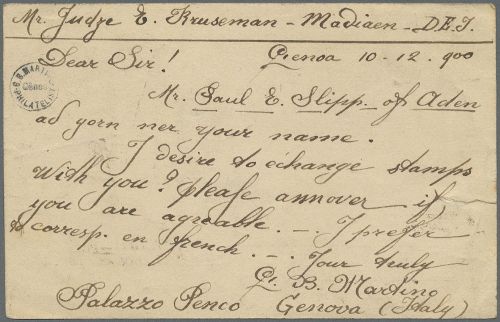 Mr. Judge E. Kruseman - Madiaen - D.E.I.
Dear Sir! Genoa 10-12. 900
G. B. MARTINO
Genoa
PHILATELIST
Mr. Saul E. Slipp. of Aden
ad yorn ner your name.
I desire to echange stamps
With you? please annover if
you are agreable. -. I prefer
to corresp. en french. -. Your truly
G. B. Martino
Palazzo Penco Genova (Italy)